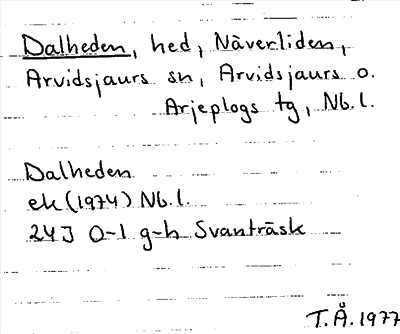 Dalheden, hed, Näverliden,
Arvidsjaurs sn, Arvidsjaurs o.
Arjeplogs tg, Nb.l.
Dalheden
ek (1974) Nb.l.
24J 0-1 g-h Svanträsk
T.Å. 1977